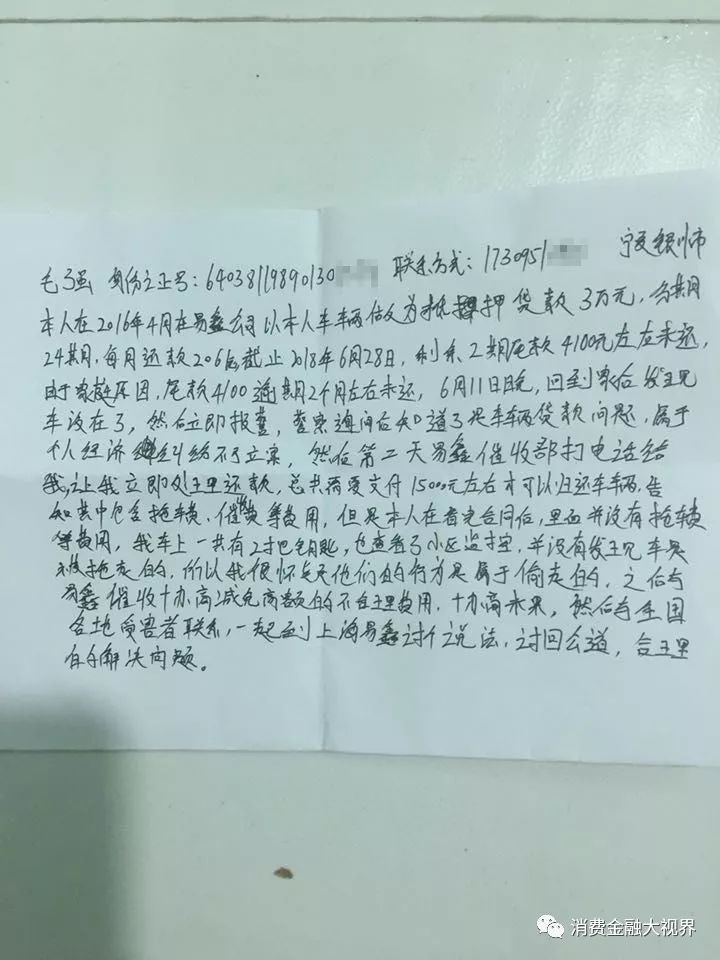 毛强 身份证号：64038119890130 联系方式：1730951 宁夏银川市
本人在2016年4月在易鑫公司以本人车车辆估价为抵押贷款3万元，分期
24期，每月还款206，截止2018年6月28日，剩余2期尾款4100元左右未还，
由于家庭原因，尾款4100逾期2个月左右未还，6月11日晚，回到家后发现
车没在了，然后立即报警，警察询问后知道了是车辆贷款问题，属于
个人经济纠纷不予立案，然后第二天易鑫催收部打电话给
我，让我立即处理还款，总共需要支付15000元左右才可以归还车辆，告
知其中包含拖车费、催费等费用，但是本人在看完合同后，里面并没有拖车费
等费用，我车上一共有2把钥匙，也查看了小区监控，并没有发现车是
被拖走的，所以我很怀疑他们的行为是属于偷走的，之后与
易鑫催收协商减免高额的不合理费用，协商未果，然后与全国
各地受害者联系，一起到上海易鑫讨个说法，讨回公道，合理
的解决问题。
消费金融大视界